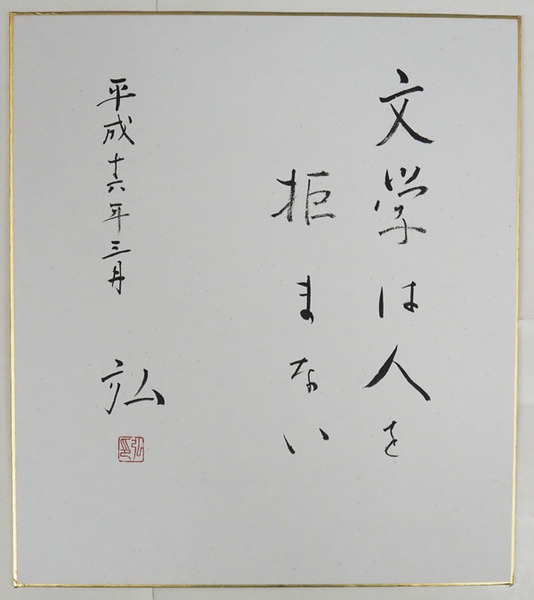 文学は人を
拒まない
平成十六年三月
弘
弘印